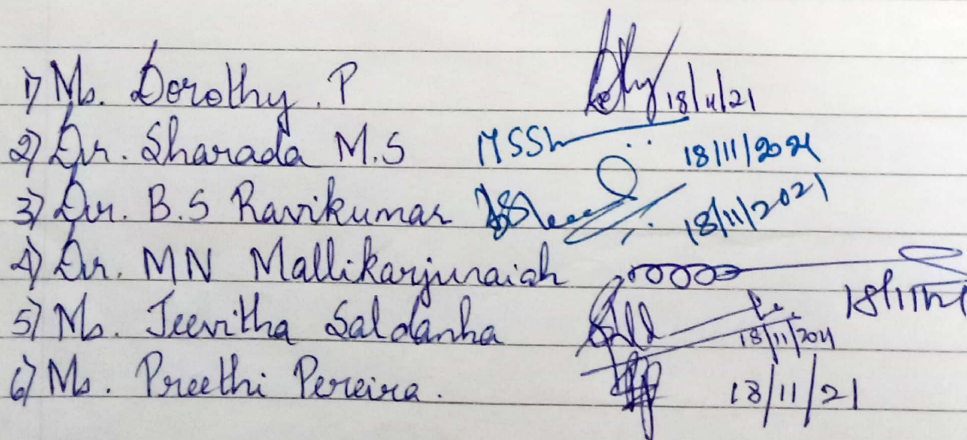 1) Ms. Dorothy . P 18/11/21
2) Dr. Sharada M.S MSSh 18/11/2021
3) Dr. B.S Ravikumar 18/11/2021
4) Dr. MN Mallikarjunaiah 18/11/21
5) Ms. Jeevitha Saldanha 18/11/2021
6) Ms. Preethi Pereira. 18/11/21